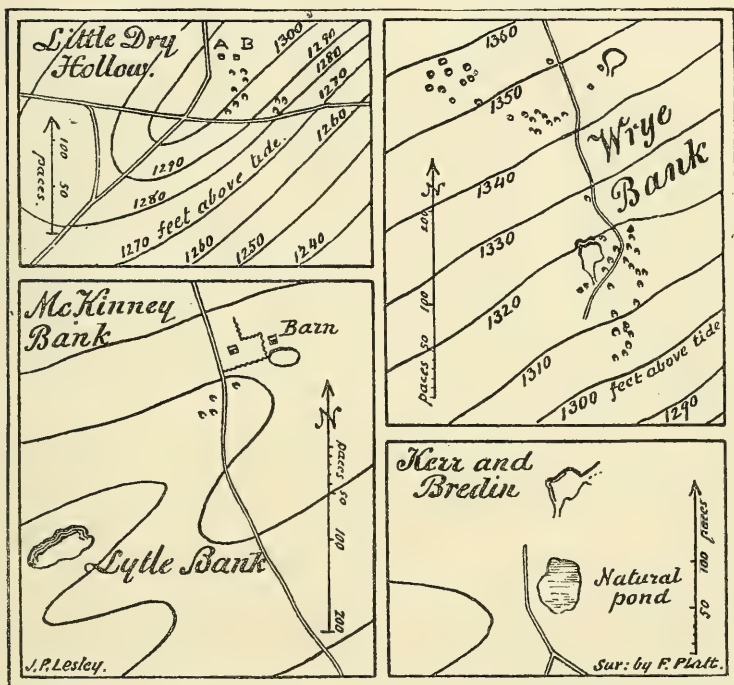 Little Dry
Hollow.
A B
1300
1290
1280
1270
1260
1290
1280
feet above tide.
1270
1260
1250
1240
100
50
paces.
1360
1350
1340
1330
1320
1310
1300
feet above tide
1290
Wrye
Bank
N
200
100
50
paces
McKinney
Bank
Barn
N
paces
50
100
200
Lytle Bank
J.P. Lesley.
Kerr and
Bredin
Natural
pond
paces
100
50
Sur: by F. Platt.